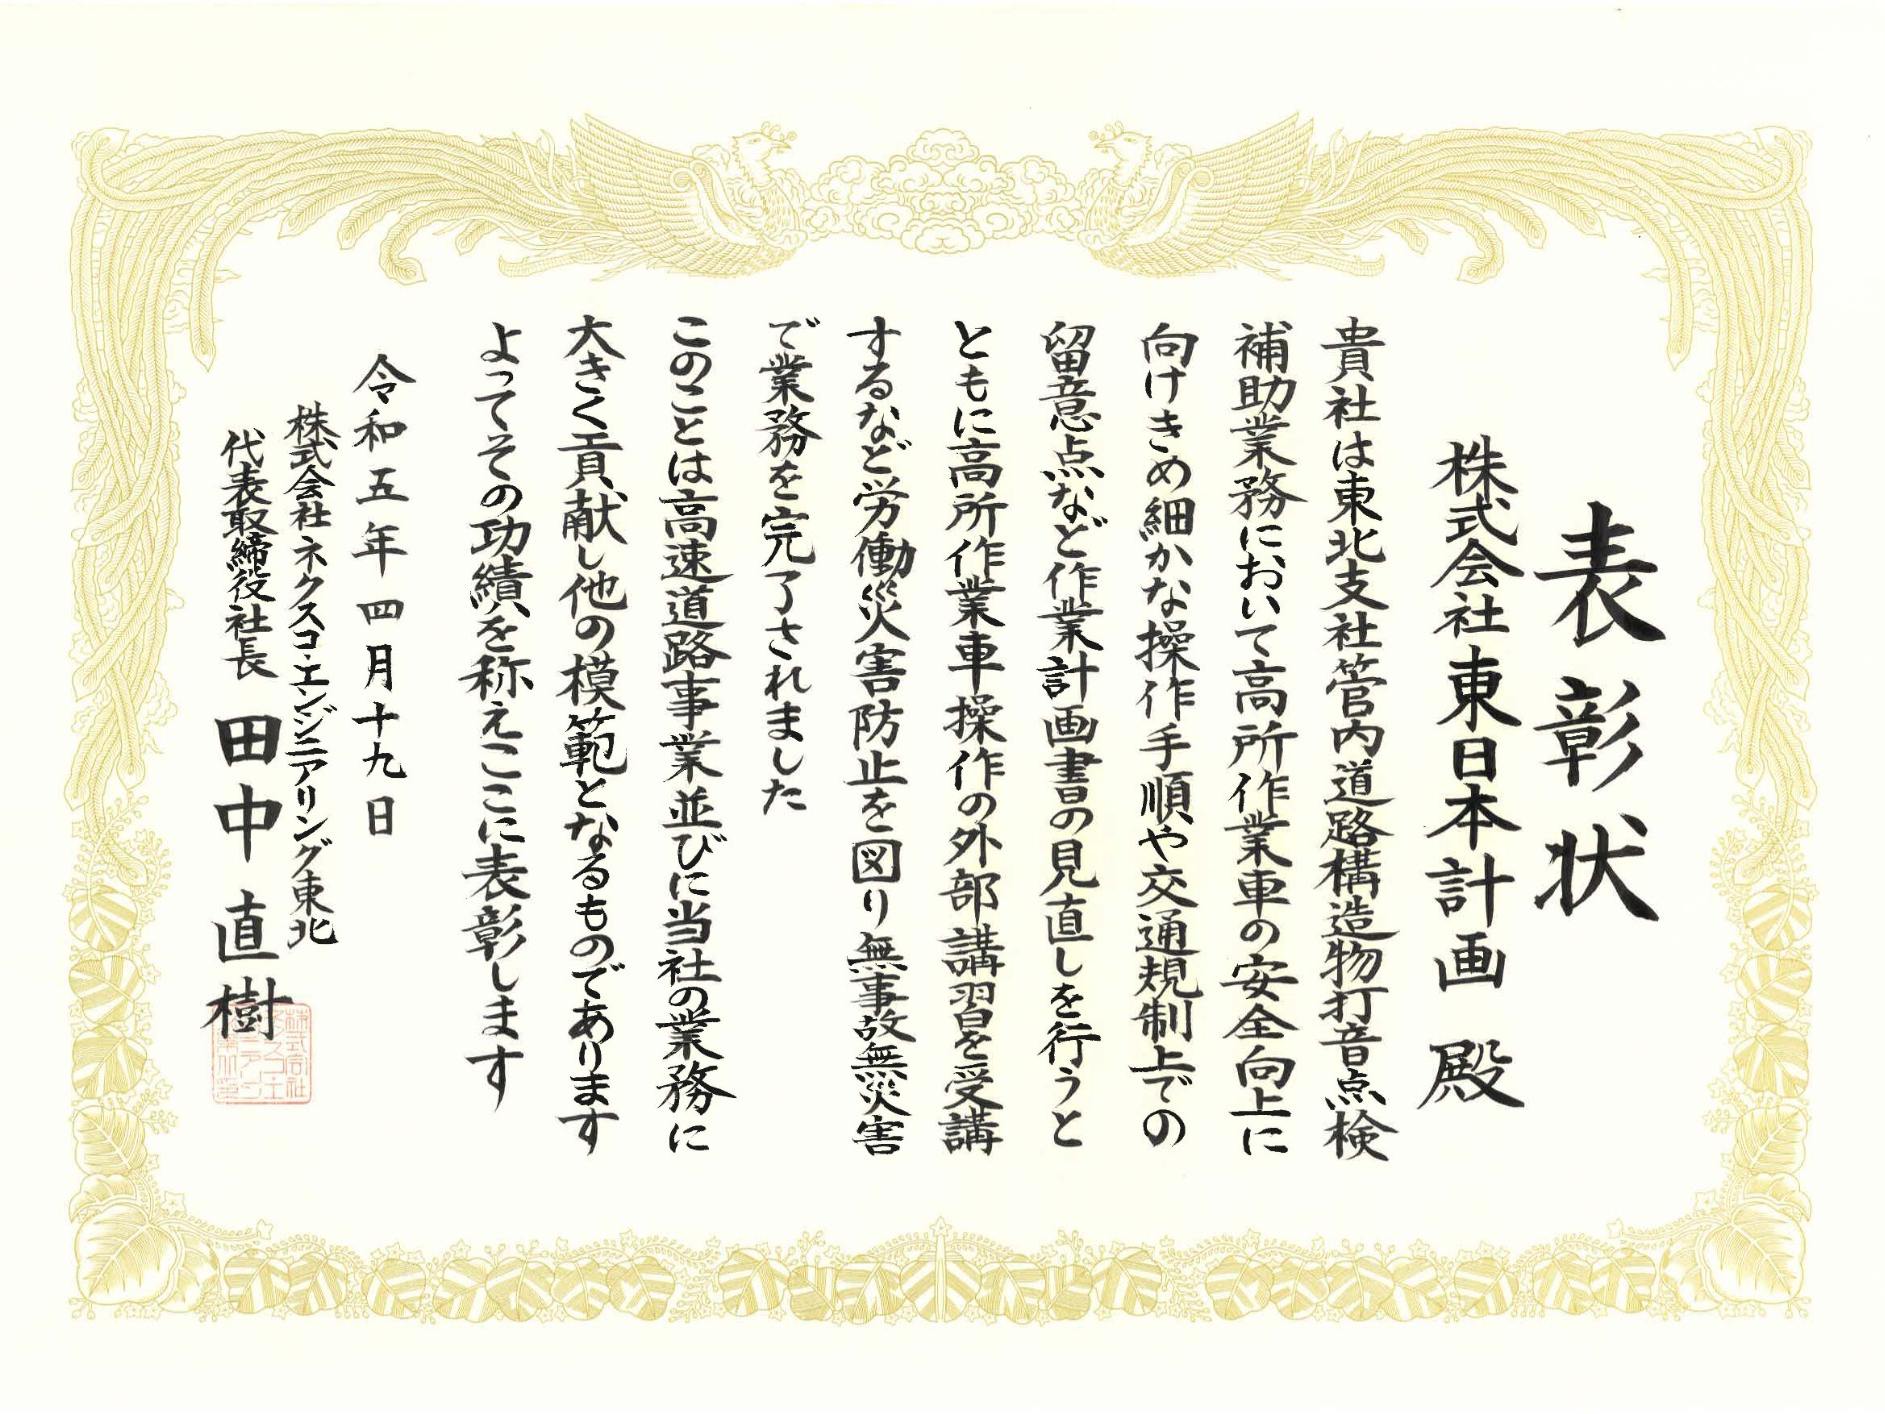 表彰状
株式会社東日本計画 殿
貴社は東北支社管内道路構造物打音点検
補助業務において高所作業車の安全向上に
向けきめ細かな操作手順や交通規制上での
留意点など作業計画書の見直しを行うと
ともに高所作業車操作の外部講習を受講
するなど労働災害防止を図り無事故無災害
で業務を完了されました
このことは高速道路事業並びに当社の業務に
大きく貢献し他の模範となるものであります
よってその功績を称えここに表彰します
令和五年四月十九日
株式会社ネクスコ・エンジニアリング東北
代表取締役社長 田中直樹